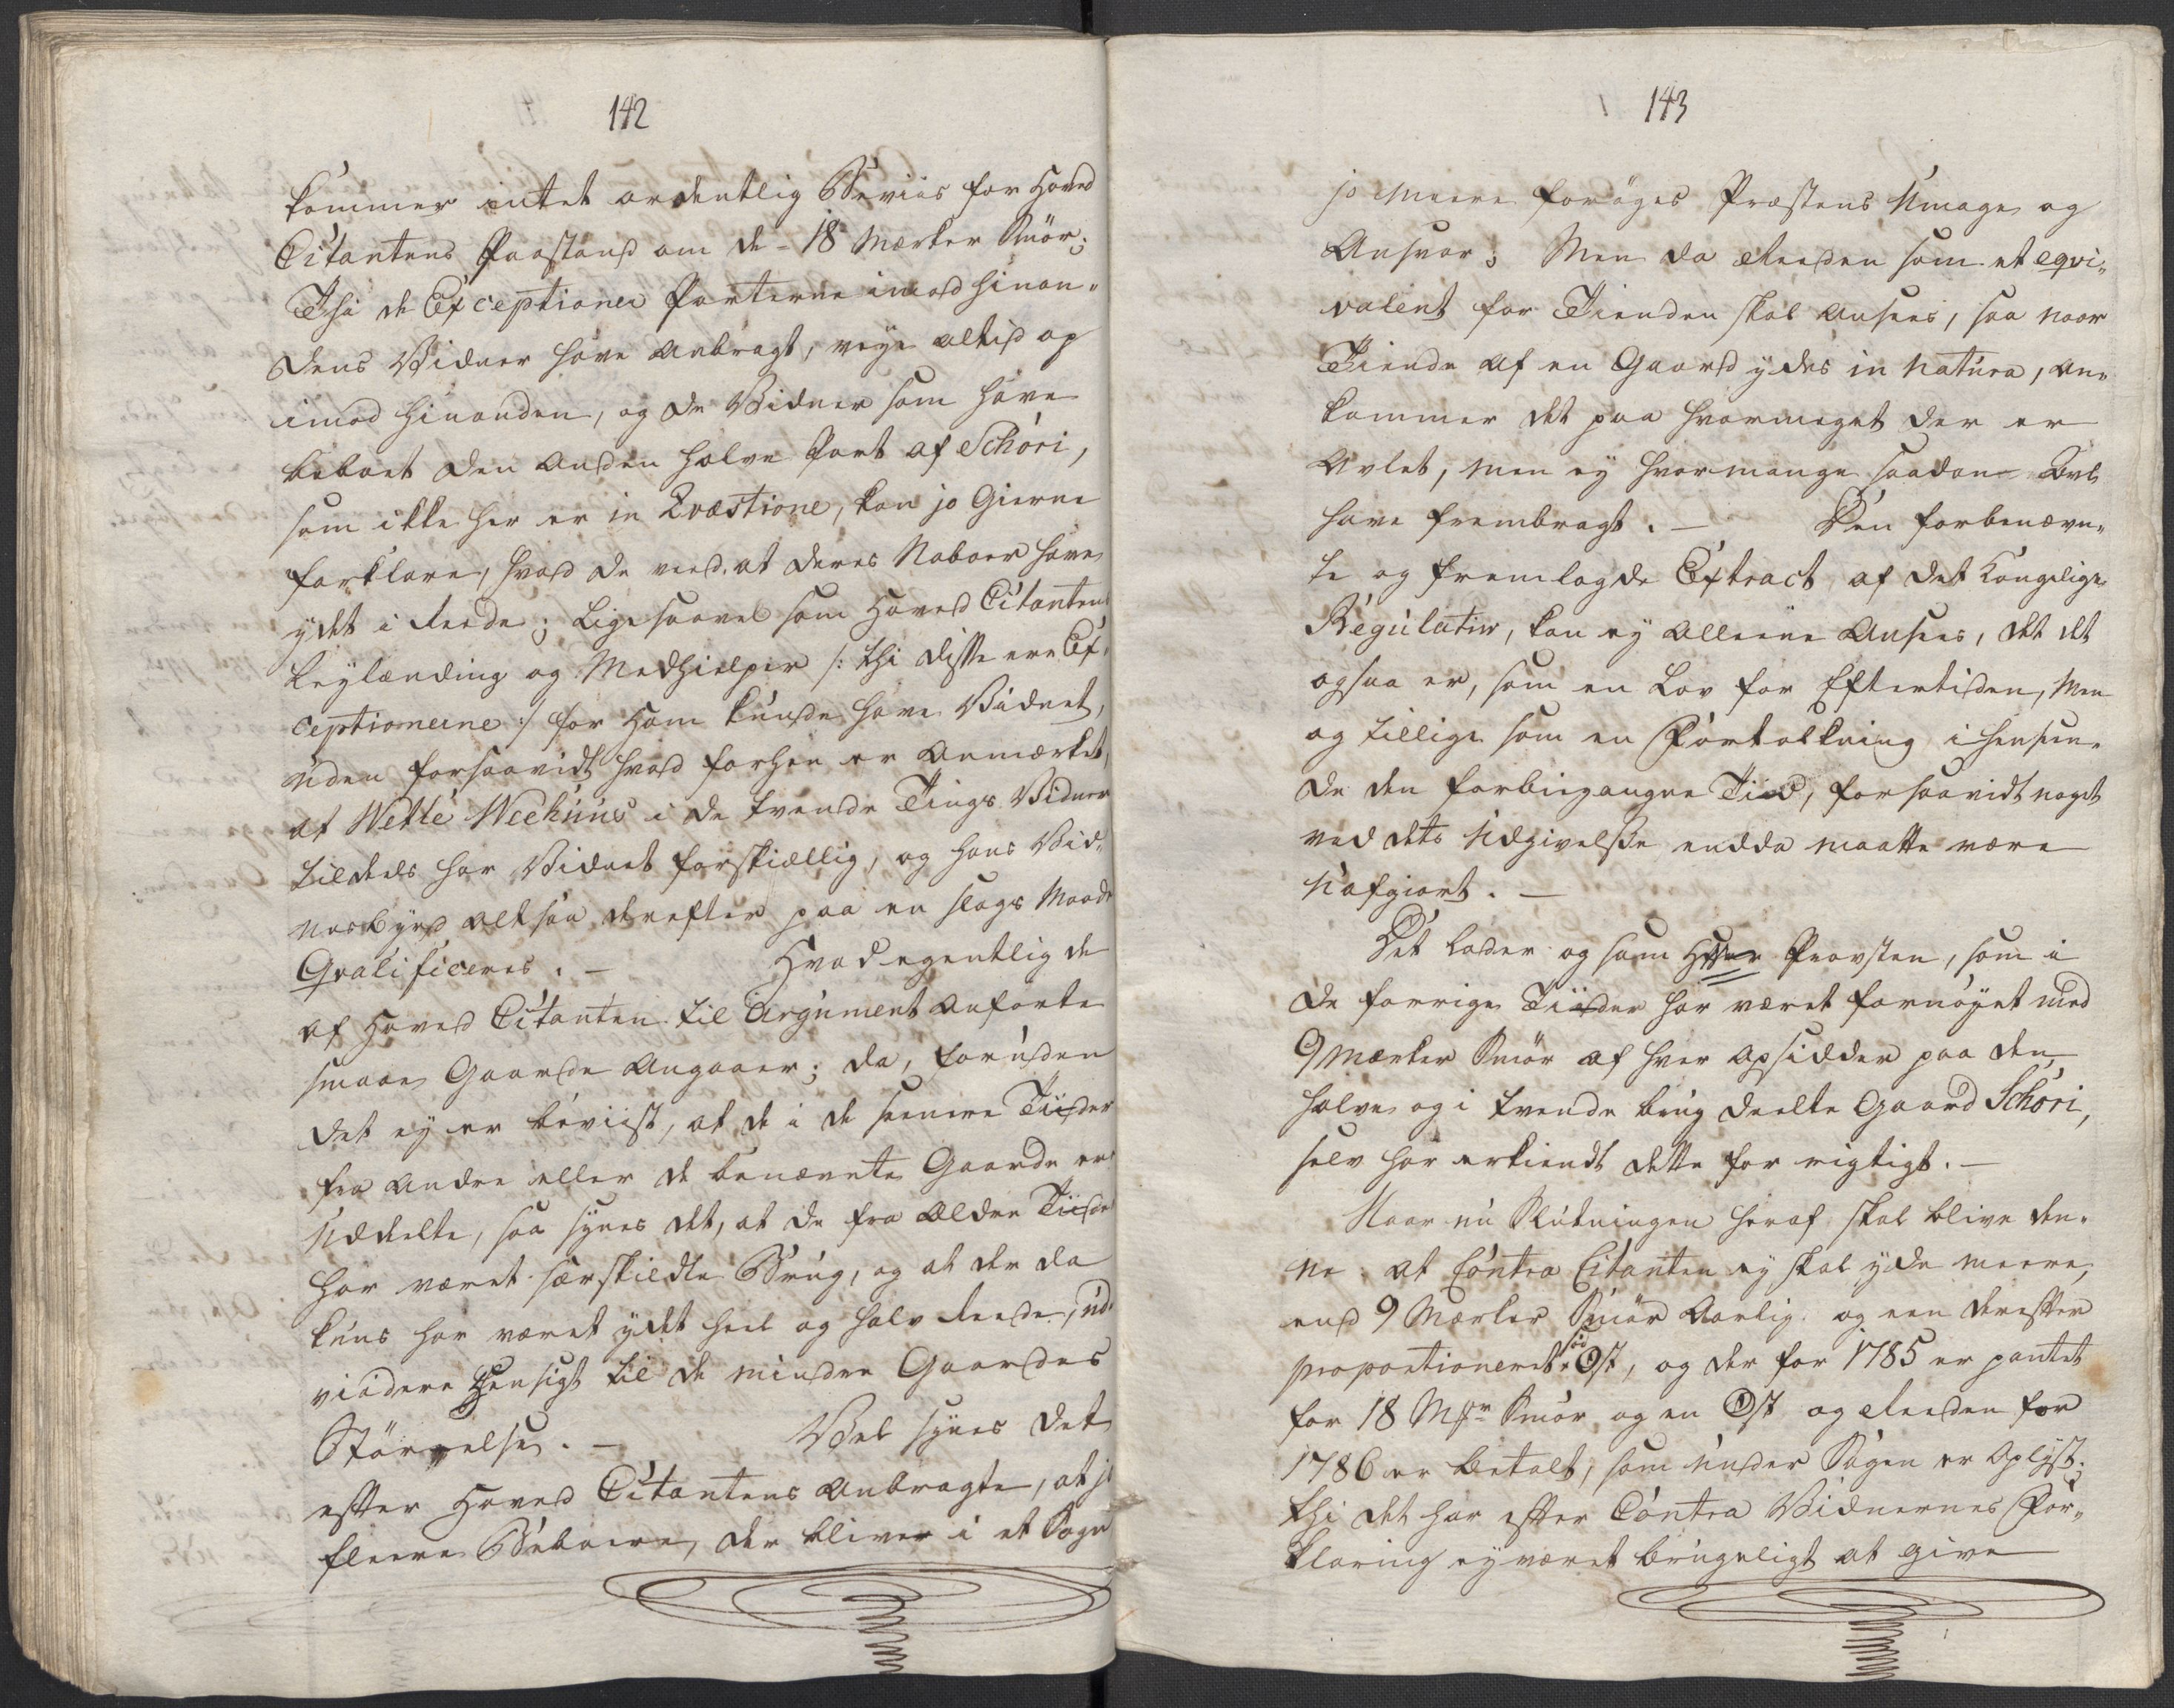 142
kommer intet ordentlig Beviis for Hoved
Citantens Paastand om de 18 Mærker Smör;
Thi de Exceptioner Parterne imod hinan-
dens Vidner have anbragt, veye altid op
imod hinanden, og de Vidner som have
beboet den anden halve Part af Schöri,
som ikke her er in Qvæstione, kan jo Gierne
forklare, hvad de veed at deres Naboer have
ydet i Reede; ligesaavel som Hoved Citantens
Leylænding og Medhielper /: thi disse ere Ex-
ceptionerne :/ for Ham kunde have Vidnet,
uden forsaavidt hvad forhen er anmærket,
at Nette Neehuus i de tvende Tings Vidner
tildeels har Vidnet forskiællig, og hans Vid-
nesbyrd altsaa derefter paa en slags Maade
Qvalificeres. — Hvad egentlig de
af Hoved Citanten til Argument anførte
smaae Gaarde angaaer; da, foruden
det ey er beviist, at de i de seenere Tiider
fra andre eller de benævnte Gaarde er
Uddeelte, saa synes det, at de fra Ældre Tiider
har været særskildte Brug, og at der da
kuns har været ydet heel og halv Reede, ud.
viidere Hensigt til de mindre Gaardes
Størrelse. — Vel synes det
efter Hoved Citantens anbragte, at jo
fleere Beboere, der bliver i et Sogn
143
jo Meere forøges Præstens Umage og
Ansvar; Men da Reeden som et eqvi-
valent for Tienden skal ansees, saa naar
Tiende af en Gaard ydes in natura, an-
kommer det paa hvormeget der er
Avlet, men ey hvormange saadan Avl
have frembragt. — Den forbenævn-
te og fremlagde Extract af det Kongelige
Regulativ, kan ey alleene ansees, det det
ogsaa er, som en Lov for Eftertiden, Men
og tillige som en Fortolkning i henseen-
de den forbigangne Tiid, forsaavidt noget
ved dets Udgivelse endda maatte være
Uafgiort. —
Det lader og som Herr Provsten, som i
de forrige Tiider har været fornøyet med
9 Mærker Smör af hver Opsidder paa den
halve og i tvende brug deelte Gaard Schöri,
selv har erkiendt dette for rigtigt. —
Naar nu Slutningen heraf skal blive den-
ne: at Contra Citanten ey skal yde meere,
end 9 Mærker Smör Aarlig og een derefter
proportioneret Ost, og der for 1785 er pantet
for 18 Mkr Smör og en Ost og Reeden for
1786 er betalt, som under Sagen er Oplyst;
thi det har efter Contra Vidnernes For-
klaring ey været brugeligt at give